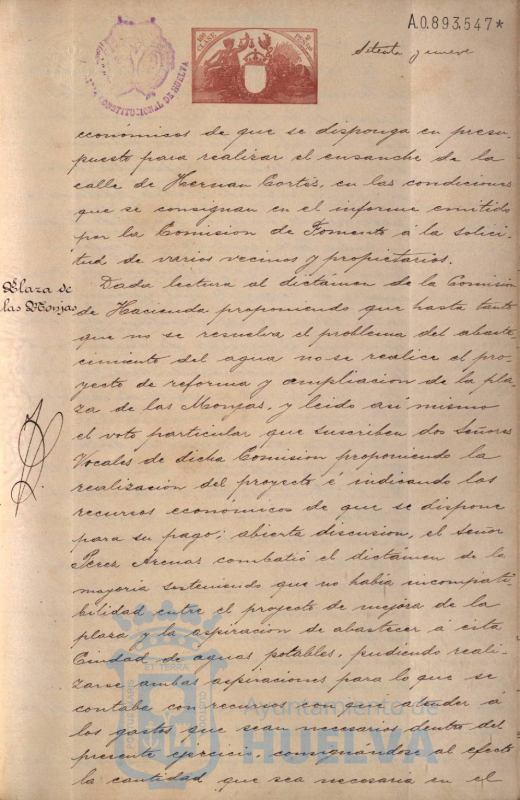 A.0.893.547*
Setenta y nueve
CONSTITUCIONAL DE HUELVA
económicos de que se disponga en presu-
puesto para realizar el ensanche de la
calle de Hernan Cortés, en las condiciones
que se consignan en el informe emitido
por la Comision de Fomento á la solici-
tud de varios vecinos y propietarios.
Plaza de
las Monjas
Dada lectura al dictámen de la Comision
de Hacienda proponiendo que hasta tanto
que no se resuelva el problema del abaste-
cimiento del agua no se realice el pro-
yecto de reforma y ampliacion de la pla-
za de las Monjas, y leido asi mismo
el voto particular que suscriben dos Señores
Vocales de dicha Comision proponiendo la
realización del proyecto é indicando los
recursos economicos de que se dispone
para su pago; abierta discusion, el Señor
Perez Arenas combatió el dictámen de la
mayoria sosteniendo que no habia incompati-
bilidad entre el proyecto de mejora de la
plaza y la aspiracion de abastecer á esta
Ciudad de aguas potables, pudiendo reali-
zarse ambas aspiraciones para lo que se
contaba con recursos con que atender á
los gastos que sean necesarios dentro del
presente ejercicio, consignándose al efecto
la cantidad que sea necesaria en el
Ayuntamiento de
HUELVA